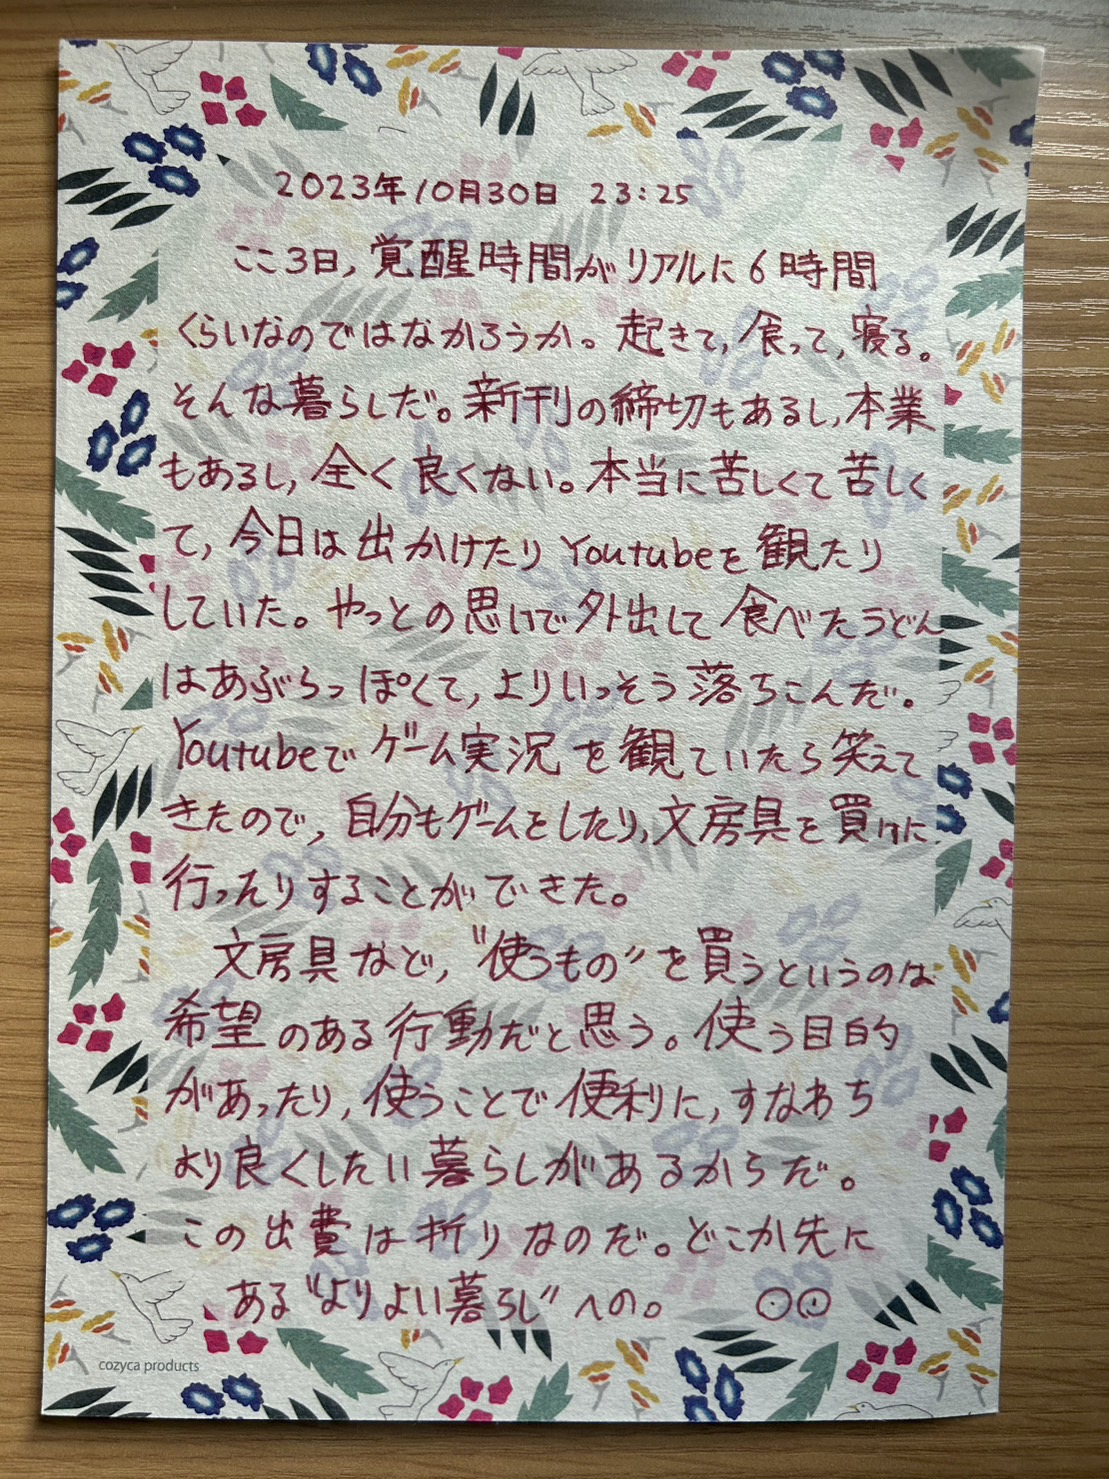 2023年10月30日 23:25
ここ3日,覚醒時間がリアルに6時間
くらいなのではなかろうか。起きて,食って,寝る。
そんな暮らしだ。新刊の締切もあるし,本業
もあるし,全く良くない。本当に苦しくて苦しく
て,今日は出かけたりYoutubeを観たり
していた。やっとの思いで外出して食べたうどん
はあぶらっぽくて,よりいっそう落ちこんだ。
Youtubeでゲーム実況を観ていたら笑えて
きたので,自分もゲームをしたり,文房具を買いに
行ったりすることができた。
文房具など,"使うもの"を買うというのは
希望のある行動だと思う。使う目的
があったり,使うことで便利に,すなわち
より良くしたい暮らしがあるからだ。
この出費は祈りなのだ。どこか先に
ある"よりよい暮らし"への。
cozyca products